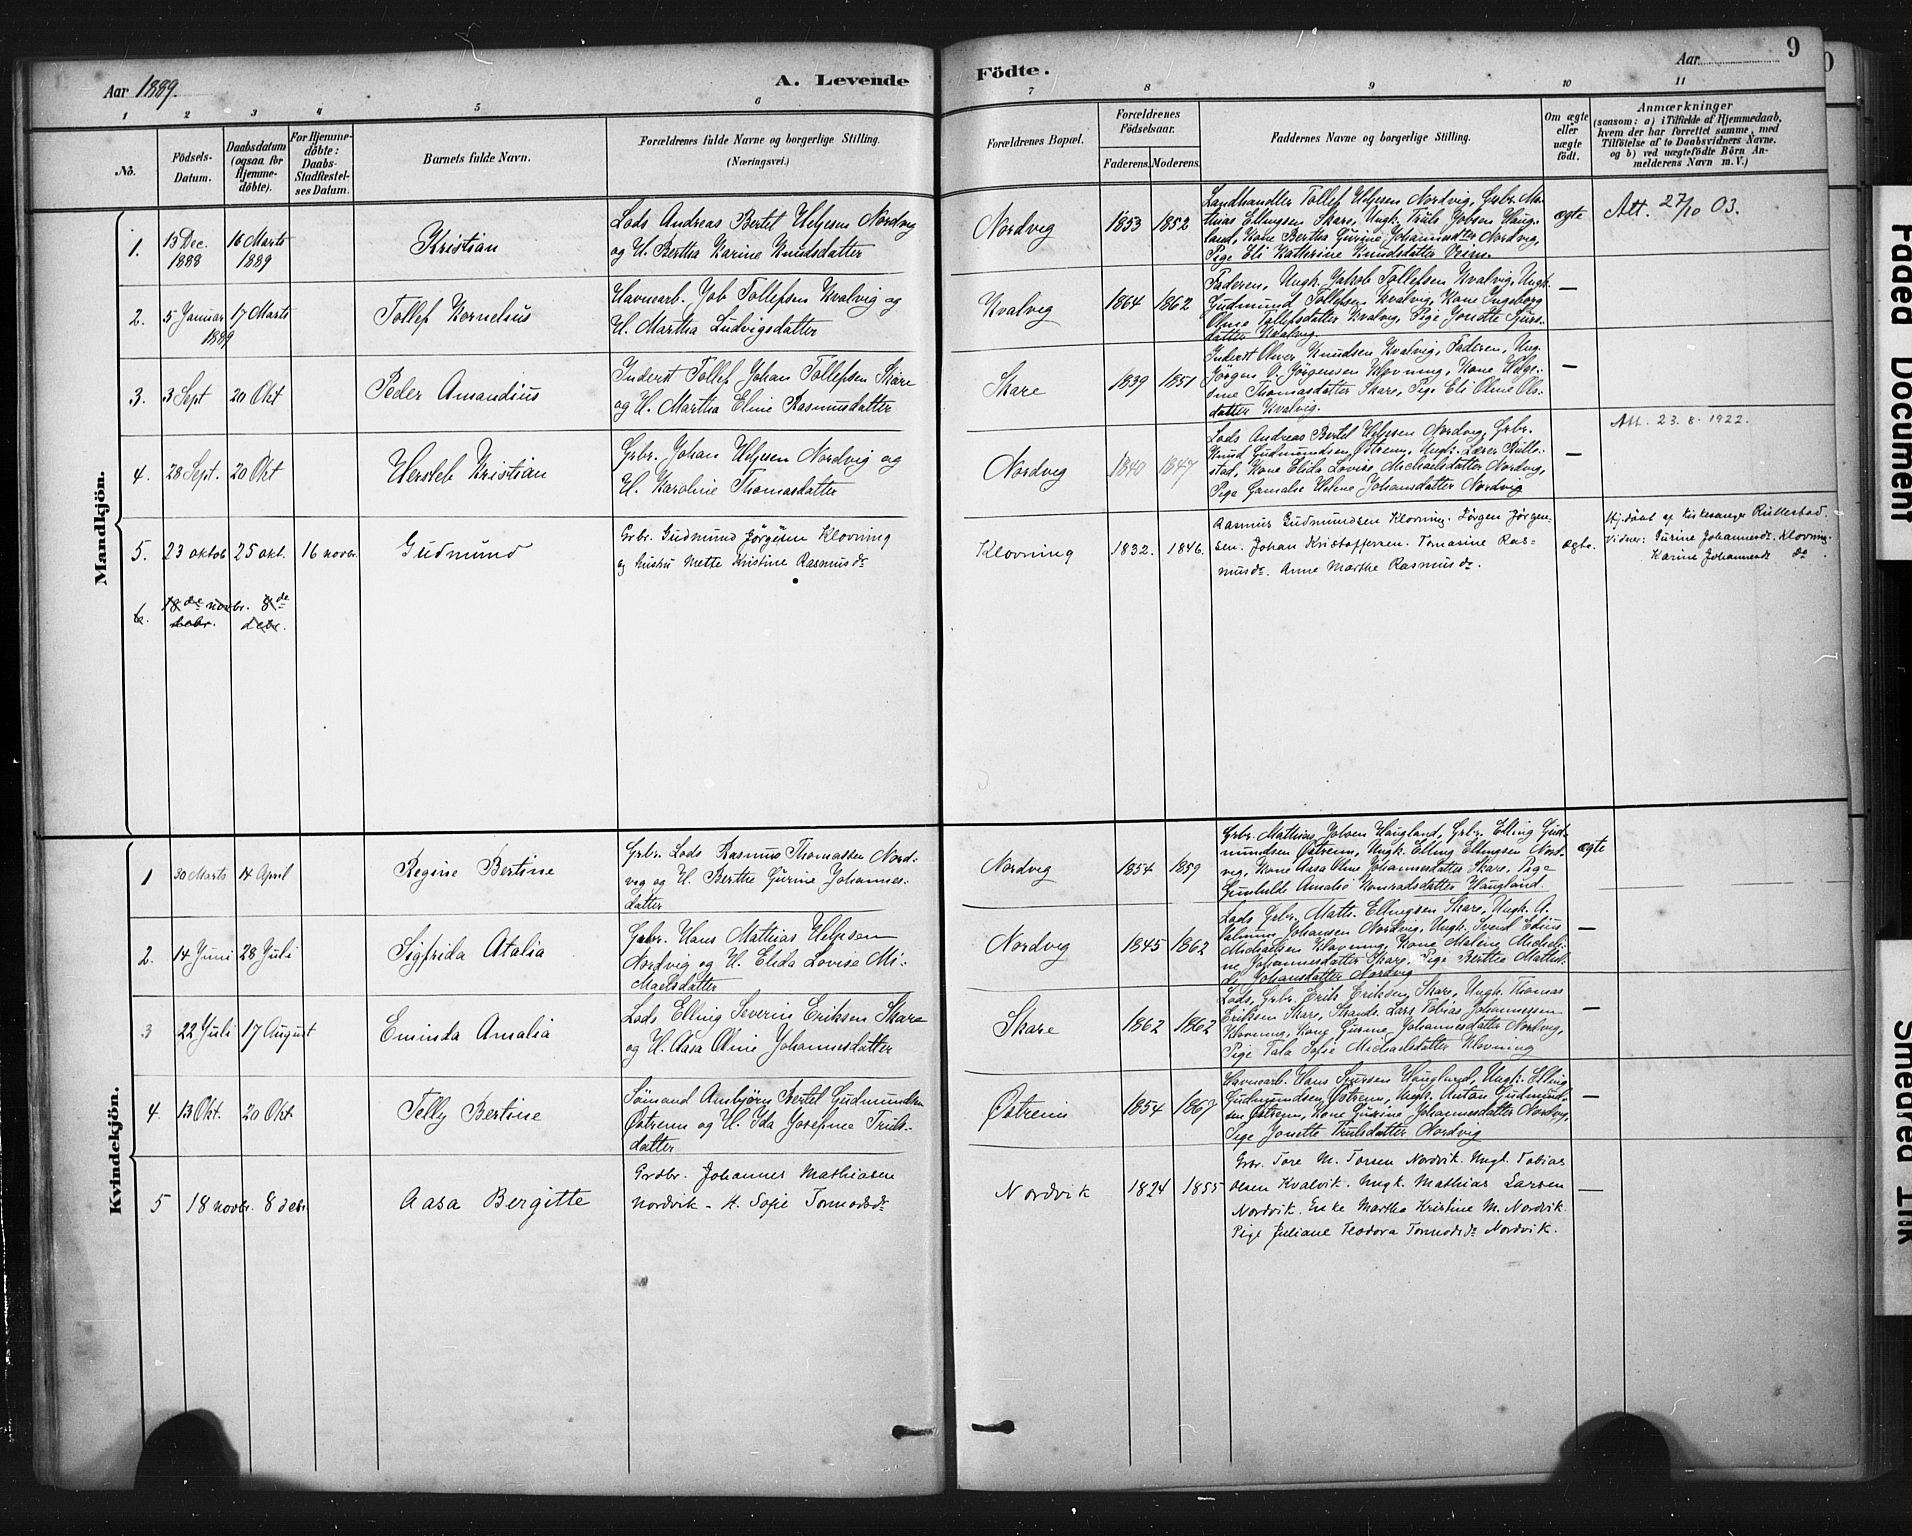 Aar 1889.
A. Levende
Födte.
Aar
9
1 2 3 4 5 6 7 8 9 10 11
No.
Födsels-Datum.
Daabsdatum (ogsaa for Hjemmedöbte).
For Hjemmedöbte: Daabs-Stadfæstelses Datum.
Barnets fulde Navn.
Forældrenes fulde Navne og borgerlige Stilling.
(Næringsvei.)
Forældrenes Bopæl.
Forældrenes Födselsaar.
Faderens. Moderens.
Faddernes Navne og borgerlige Stilling.
Om ægte eller uægte födt.
Anmærkninger
(saasom: a) i Tilfælde af Hjemmedaab, hvem der har forrettet samme, med Tilföielse af to Daabsvidners Navne, og b) ved uægtefödte Börn Anmelderens Navn m. V.)
Mandkjön.
1. 15 Dec. 1888 16 Marts 1889 Kristian
Lods Andreas Bertel Helgesen Nordvig
og H. Bertha Karine Knudsdatter
Nordvig 1853 1852
Landhandler Tollef Helgesen Nordvig, Grbr. Ma-
thias Ellingsen Skare, Ungk. Truls Jobsen Haug-
land, Kone Bertha Gurine Johannesdtr Nordvig,
Pige Eli Kathrine Knudsdatter
ægte Att. 27/10 03.
2. 5 Januar 1889 17 Marts Tollef Kornelius
Havnearb. Job Tollefsen Kvalvig og
H. Martha Ludvigsdatter
Kvalvig 1864 1862
Faderen, Ungk. Jakob Tollefsen Kvalvig, Ungk.
Gudmund Tollefsen Kvalvig, Kone Ingeborg
Oline Tollefsdatter Kvalvig, Pige Jonette Sjurs-
datter Kvalvig
—
3. 3 Sept 20 Okt Peder Amandius
Inderst Tollef Johan Tollefsen Skare
og H. Martha Eline Rasmusdatter
Skare 1839 1851
Inderst Oliver Knudsen Kvalvig, Faderen, Ung.
Jörgen O. Jörgensen Klovning, Kone Helge-
Thomasdatter Skare, Pige Eli Oline Ols-
datter Kvalvig.
—
4. 28 Sept. 20 Okt Hersleb Kristian
Grbr. Johan Helgesen Nordvig og
H. Karoline Thomasdatter
Nordvig 1840 1847
Lods Andreas Bertel Helgesen Nordvig, Grbr.
Knud Gudmundsen Östrem, Ungk. Lærer Rulle-
stad, Kone Elida Lovise Michaelsdatter Nordvig,
Pige Gamalie Helene Johansdatter Nordvig
— Att. 23. 8. 1922.
5. 23 oktob 25 okt. 16 novbr. Gudmund
Grbr. Gudmund Jörgensen Klovning
og hustru Mette Kristine Rasmusdr
Klovning 1832. 1846.
Rasmus Gudmundsen Klovning. Jörgen Jörgen-
sen. Johan Kristoffersen. Tomasine Ras-
musdr. Anne Marthe Rasmusdr.
ægte.
Hj.döbt af kirkesanger Rullestad.
Vidner: Gurine Johannesdr. Klovning
Karine Johannesdr do
6. 18de novbr. 8de debr.
Kvindekjön.
1 30 Marts 14 April Regine Bertine
Grbr. Lods Rasmus Thomassen Nord-
vig og H. Berthe Gurine Johannes-
datter
Nordvig 1854 1859
Grbr. Mathias Jobsen Haugland, Grbr. Elling Gud-
mundsen Östrem, Ungk. Elling Ellingsen Nord-
vig, Kone Aasa Oline Johannesdatter Skare, Pige
Gunhilde Amalie Konradsdatter Haugland.
ægte
2. 14 Juni 28 Juli Sigfrida Atalia
Grbr. Hans Mathias Helgesen
Nordvig og H. Elida Lovise Mi-
Maelsdatter
Nordvig 1845 1862
Lods, Grbr. Math. Ellingsen Skare, Ungk. A.
Johansen Nordvig, Ungk. Svend Edius
Michaelsen Klovning, Kone Malene Micheli-
ne Johannesdatter Skare, Pige Berthea Mathil-
de Johansdatter Nordvig
—
3 22 Juli 17 August Eminda Amalia
Lods Elling Severin Eriksen Skare
og H. Aasa Oline Johannesdatter
Skare 1862 1862
Lods, Grbr. Erik Eriksen Skare, Ungk. Thomas
Eriksen Skare, Strands. Lars Tobias Johannesen
Klovning, Kone Gurine Johannesdatter Nordvig,
Pige Tala Sofie Michaelsdatter Klovning
—
4. 13 Okt. 20 Okt. Telly Bertine
Sömand Ambjörn Bertel Gudmundsen
Östrem og H. Ida Josefine Truls-
datter
Östrem 1854 1867
Havnearb. Hans Sjursen Haugland, Ungk. Elling
Gudmundsen Östrem, Ungk. Anton Gudmund-
sen Östrem, Kone Gurine Johannesdatter Nordvig,
Pige Jonette Trulsdatter Nordvig
—
5 18 novbr. 8 debr Aasa Bergitte
Grdbr. Johannes Mathiasen
Nordvik - H. Sofie Tormodsdr
Nordvik 1824 1855
Grbr. Tore M. Torsen Nordvik. Ungk. Tobias
Olsen Kvalvik. Ungk. Mathias Larsen
Nordvik. Enke Martha Kristine M. Nordvik.
Pige Juliane Teodora Tormodsdr Nordvik.
—
Faded Document
Smeared Ink